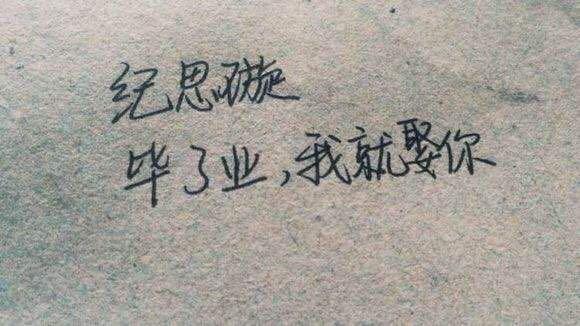 纪思璇
毕了业,我就娶你